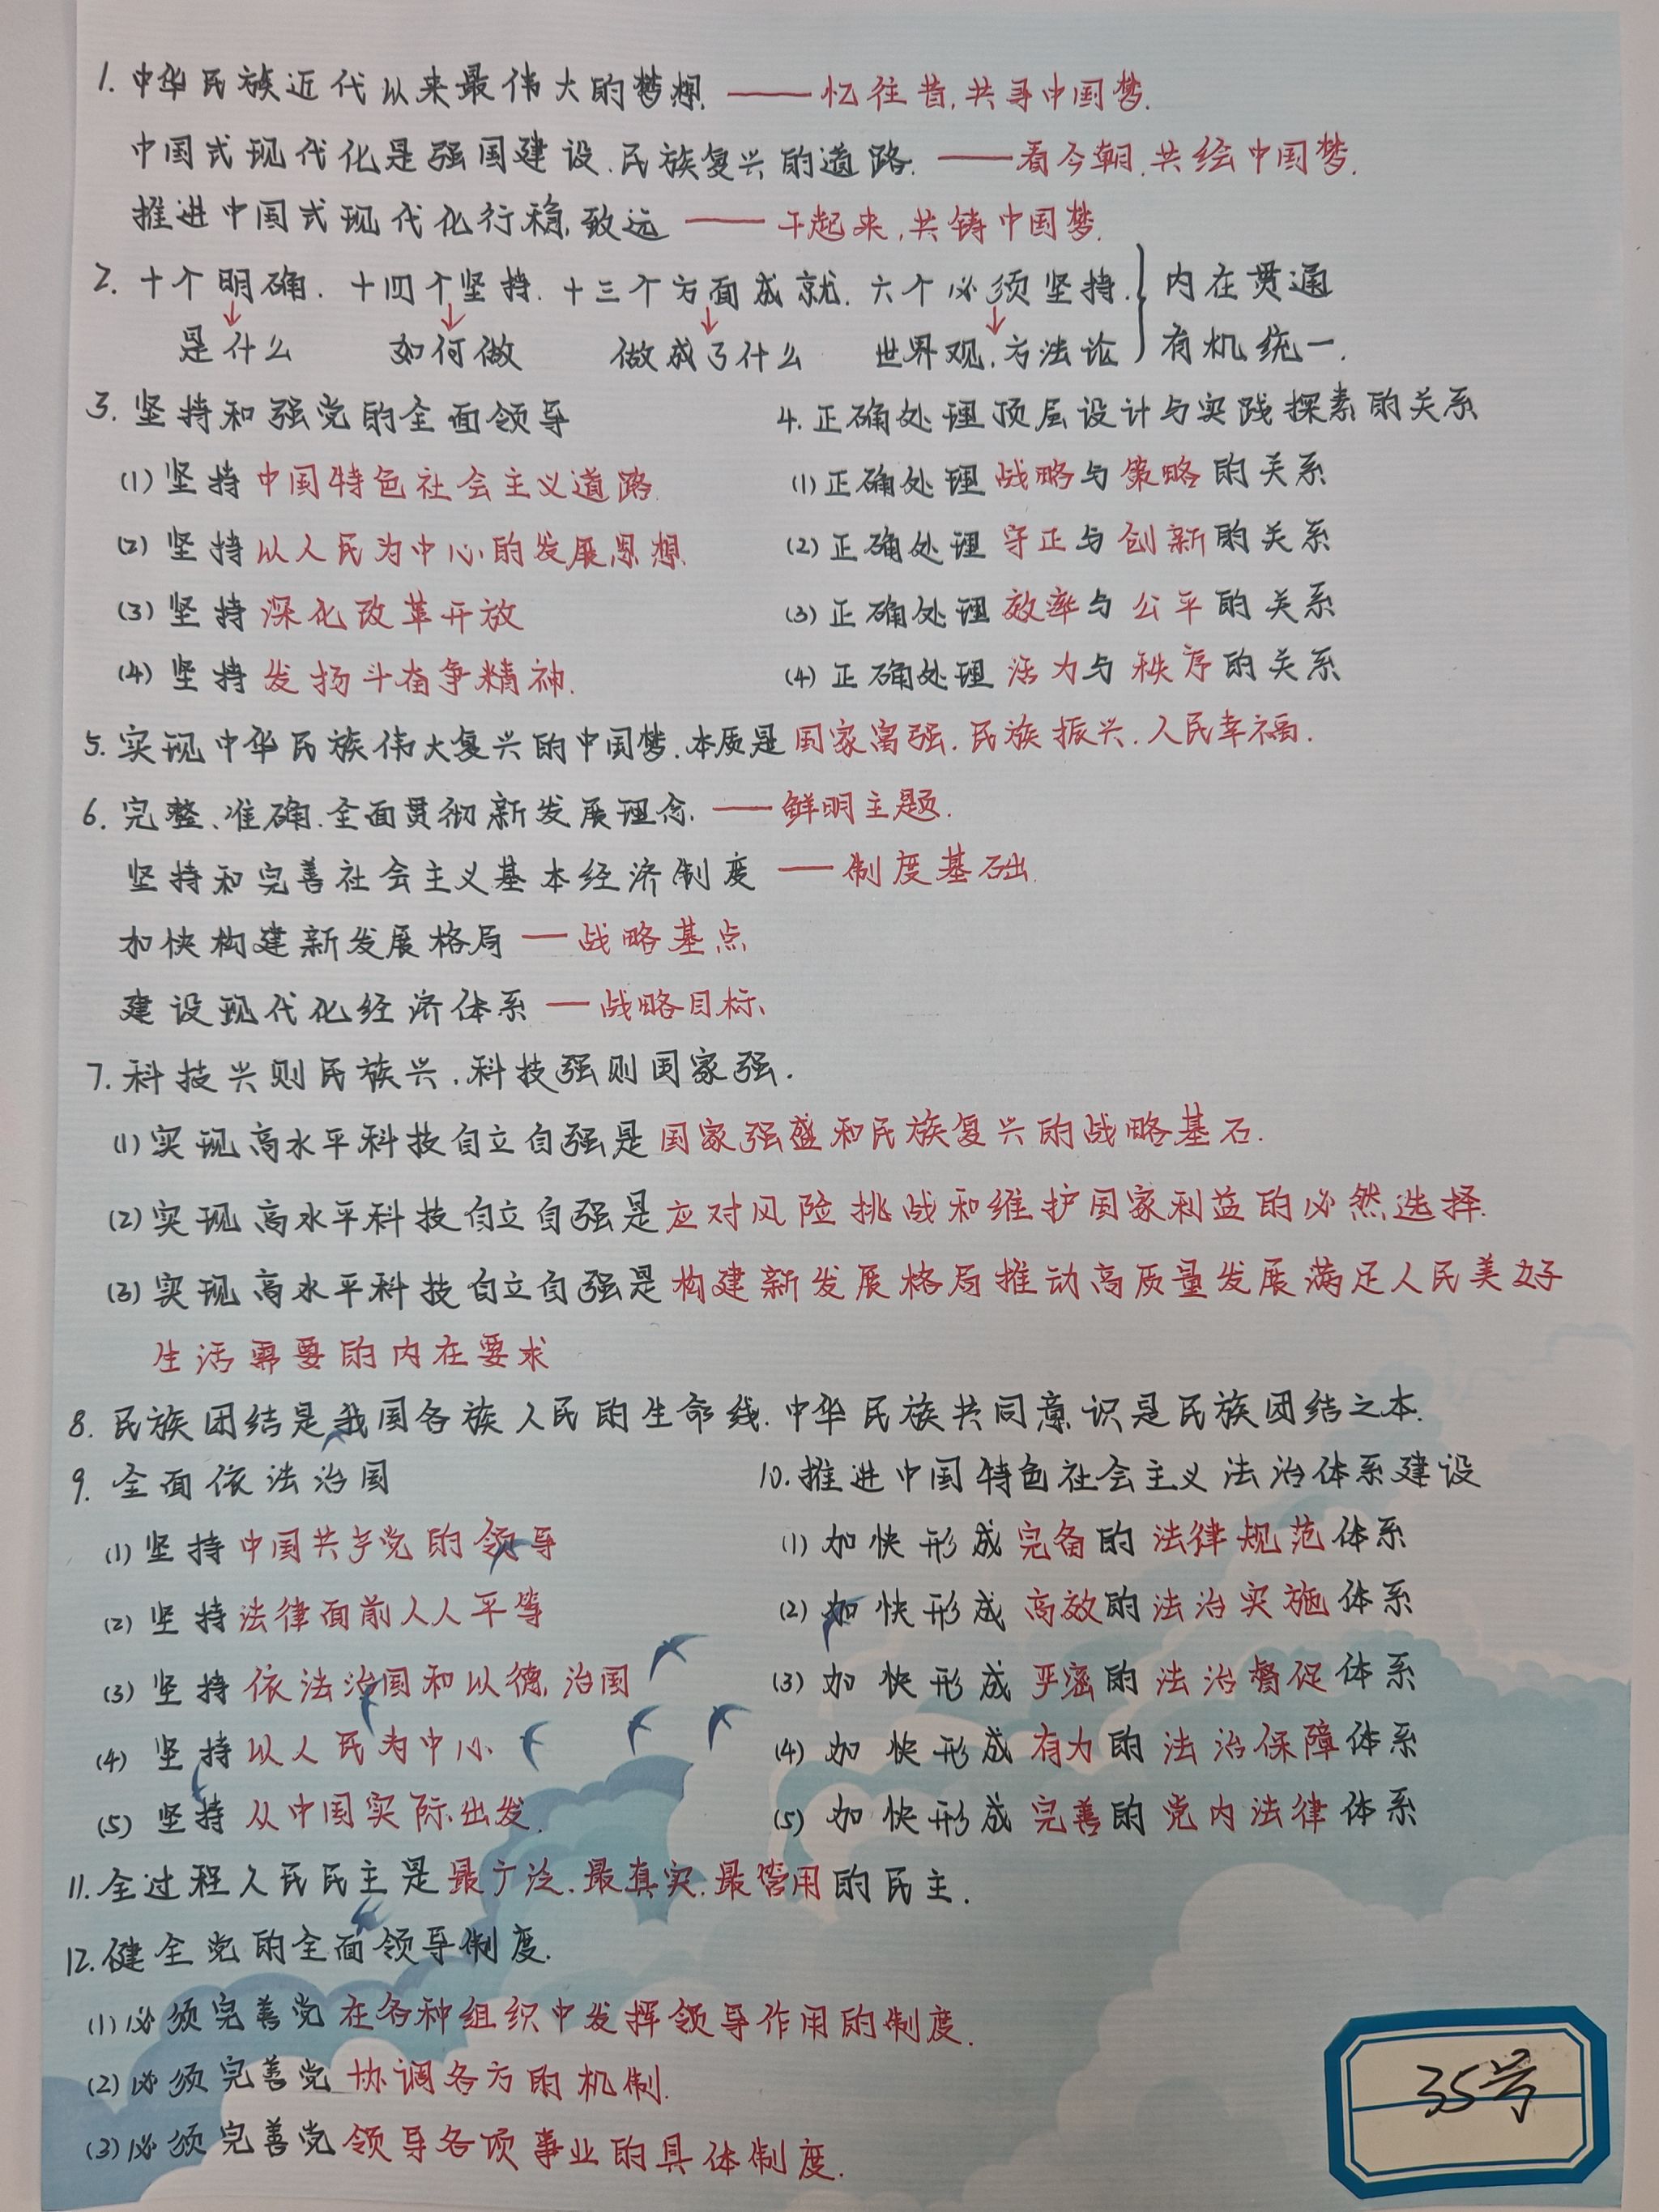 1. 中华民族近代以来最伟大的梦想. —— 忆往昔,共寻中国梦.
中国式现代化是强国建设、民族复兴的道路. —— 看今朝,共绘中国梦.
推进中国式现代化行稳致远 —— 干起来,共铸中国梦.
2. 十个明确. 十四个坚持. 十三个方面成就. 六个必须坚持. } 内在贯通
↓ ↓ ↓ ↓
是什么 如何做 做成了什么 世界观、方法论 有机统一.
3. 坚持和强党的全面领导
(1) 坚持中国特色社会主义道路
(2) 坚持以人民为中心的发展思想
(3) 坚持深化改革开放
(4) 坚持发扬斗奋争精神.
4. 正确处理顶层设计与实践探素的关系
(1) 正确处理战略与策略的关系
(2) 正确处理守正与创新的关系
(3) 正确处理效率与公平的关系
(4) 正确处理活力与秩序的关系
5. 实现中华民族伟大复兴的中国梦.本质是国家富强.民族振兴.人民幸福.
6. 完整、准确、全面贯彻新发展理念. —— 鲜明主题.
坚持和完善社会主义基本经济制度 —— 制度基础
加快构建新发展格局 — 战略基点
建设现代化经济体系 — 战略目标
7. 科技兴则民族兴,科技强则国家强.
(1) 实现高水平科技自立自强是国家强盛和民族复兴的战略基石.
(2) 实现高水平科技自立自强是应对风险挑战和维护国家利益的必然选择.
(3) 实现高水平科技自立自强是构建新发展格局推动高质量发展满足人民美好
生活需要的内在要求
8. 民族团结是我国各族人民的生命线.中华民族共同意识是民族团结之本.
9. 全面依法治国
(1) 坚持中国共产党的领导
(2) 坚持法律面前人人平等
(3) 坚持依法治国和以德治国
(4) 坚持以人民为中心
(5) 坚持从中国实际出发.
10. 推进中国特色社会主义法治体系建设
(1) 加快形成完备的法律规范体系
(2) 加快形成高效的法治实施体系
(3) 加快形成严密的法治督促体系
(4) 加快形成有力的法治保障体系
(5) 加快形成完善的党内法律体系
11. 全过程人民民主是最广泛.最真实.最管用的民主.
12. 健全党的全面领导制度.
(1) 必须完善党在各种组织中发挥领导作用的制度.
(2) 必须完善党协调各方的机制.
(3) 必须完善党领导各项事业的具体制度.
35号